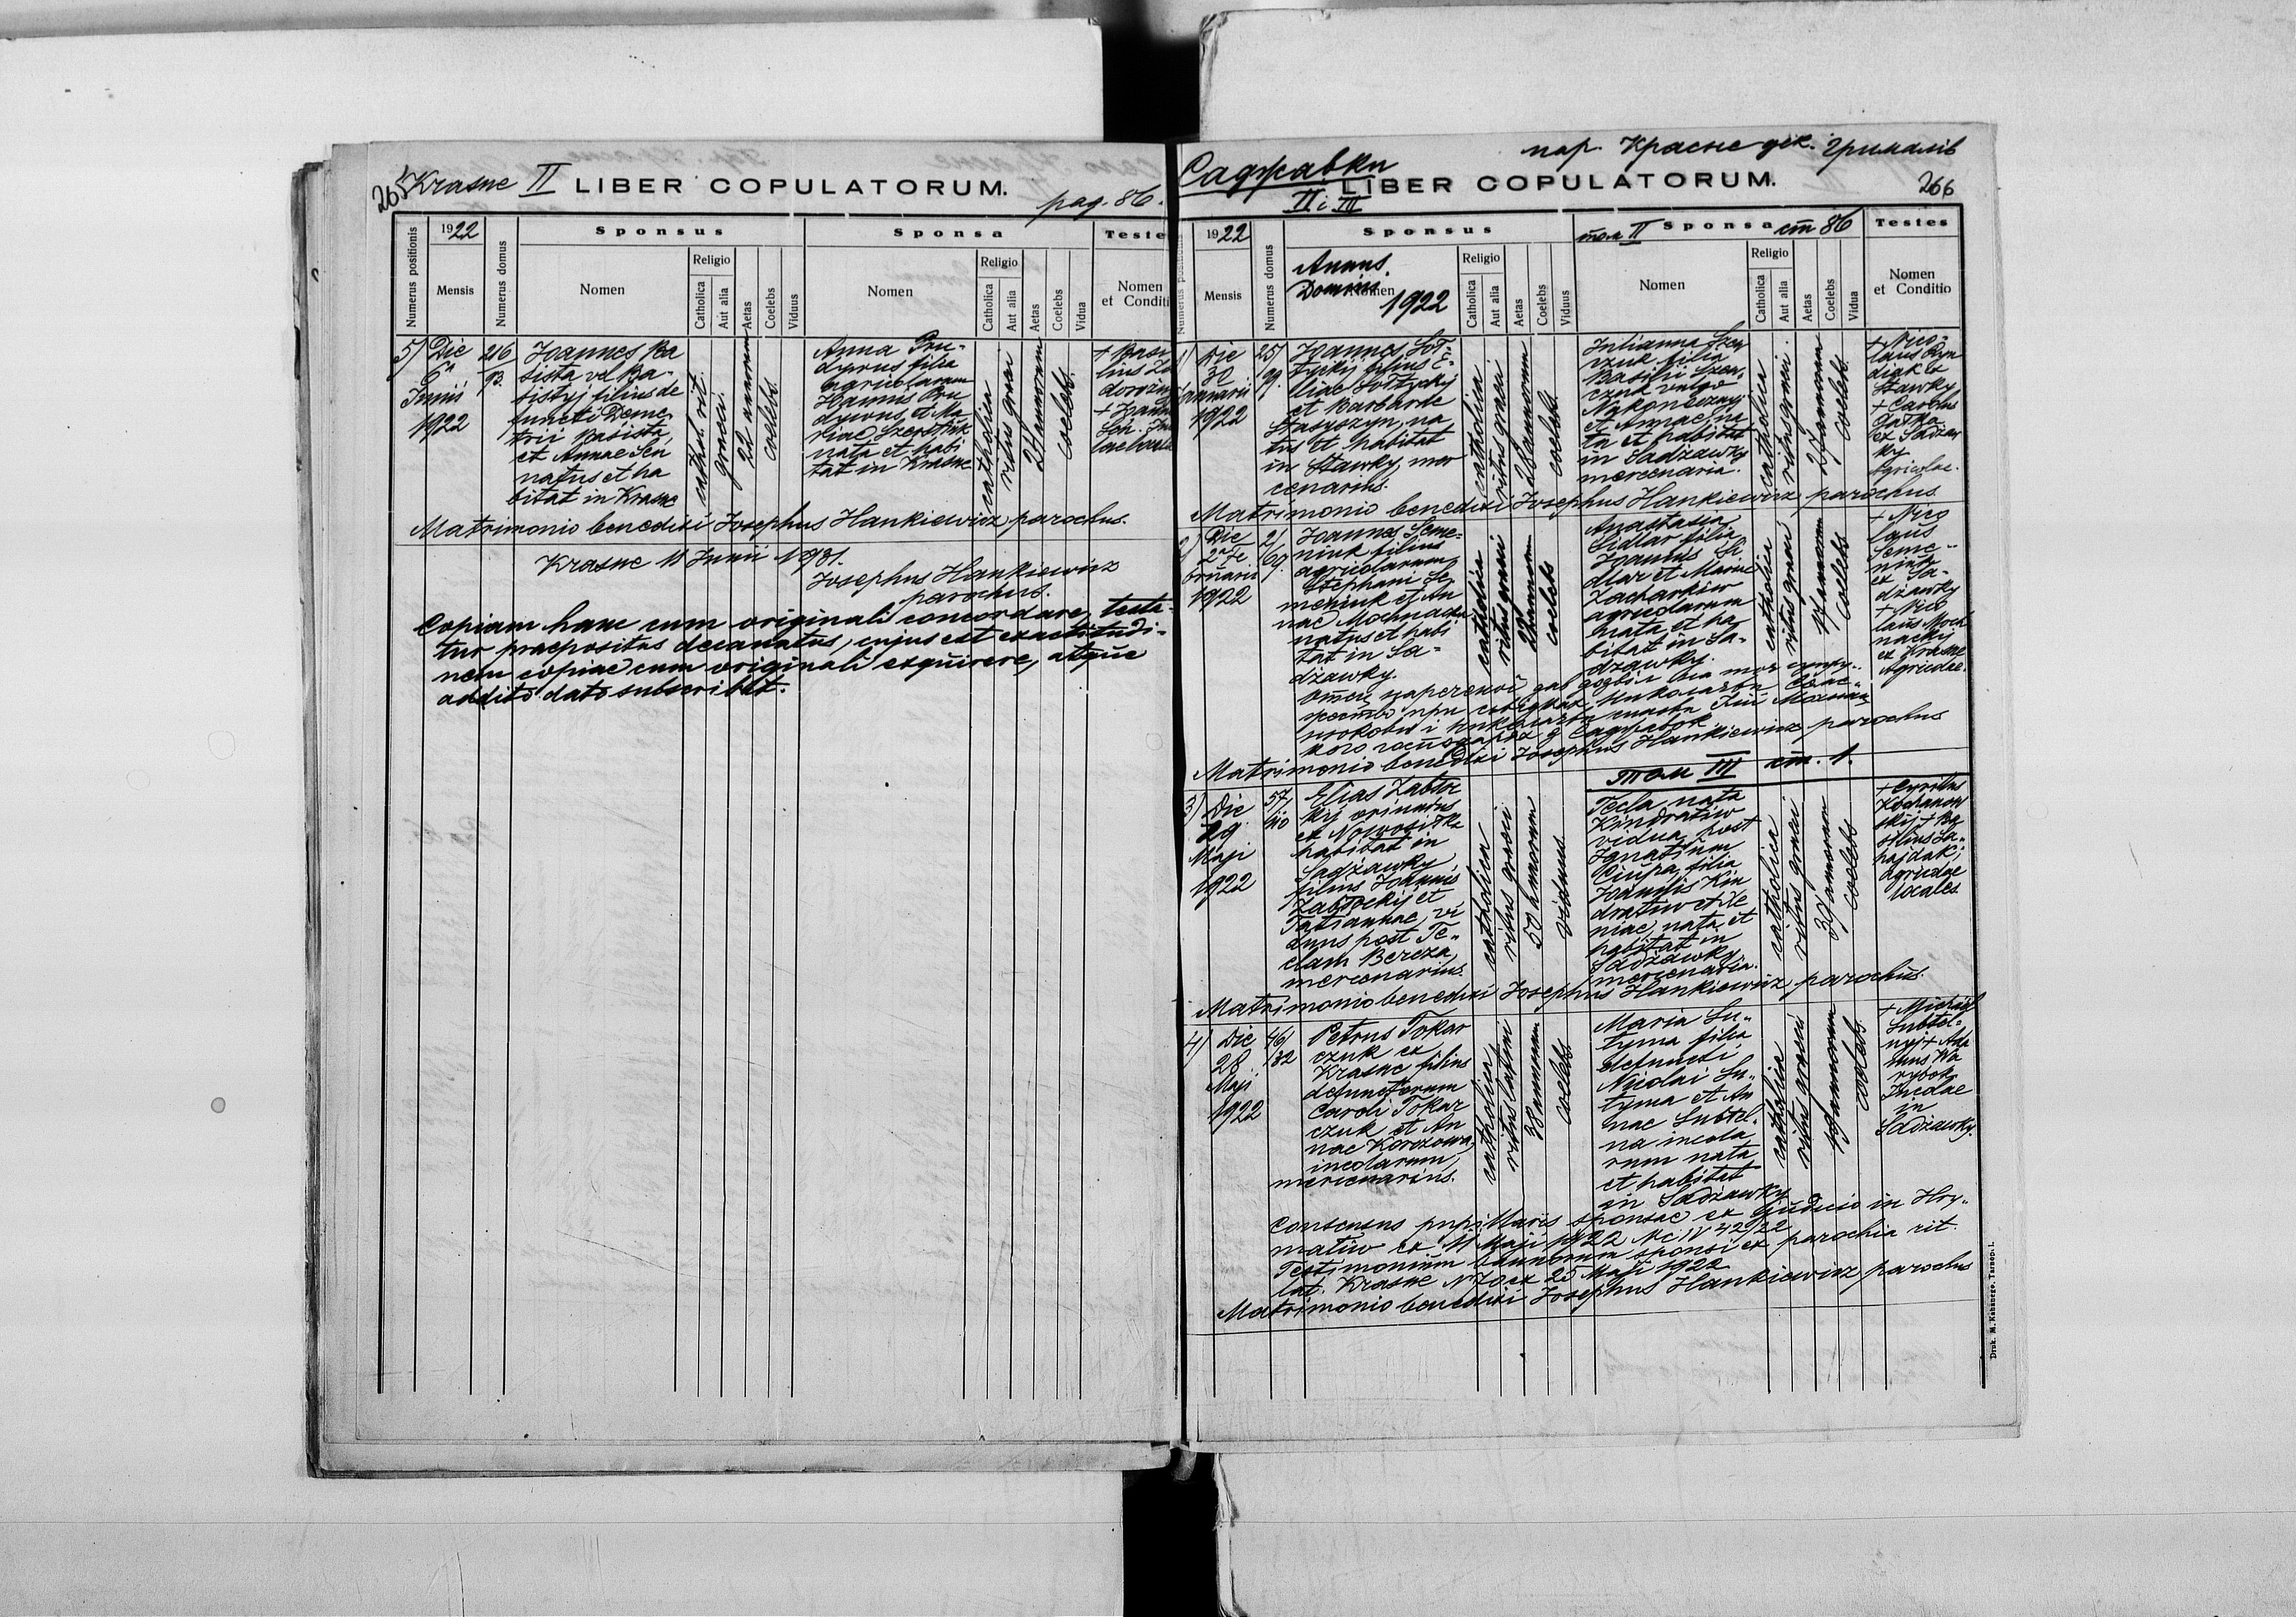 265 Krasne II LIBER COPULATORUM.
pag. 86.
Numerus positionis
1922
Mensis
Numerus domus
Sponsus
Nomen
Religio
Catholica
Aut alia
Aetas
Coelebs
Viduus
Sponsa
Nomen
Religio
Catholica
Aut alia
Aetas
Coelebs
Vidua
Teste
Nomen
et Conditi
5)
Die
6a
Junii
1922
216
93.
Joannes Ba
sista vel Ba-
sistyj filius de
functi Deme
trii Basista,
et Annae Sen
natus et ha
bitat in Krasne
cathol. rit.
graeci.
22 annorum
coelebs.
Anna Pru-
dyvus filia
agricolarum
Joannis Pru
dyvus, et Ma
riae
nata et habi
tat in Krasne
catholica
ritus graeci
21 annorum
coelebs.
+ Basi
lius
Matrimonio benedixi Josephus Hankiewicz parochus.
Krasne 11 Junii 1931.
Josephus Hankiewicz
parochus.
Copiam hanc cum originali concordare, testa-
tur praepositus decanatus, cujus est exactitudi-
nem copiae cum originali exquirere, atque
addito dato subscribit.
пар. Красне дек. Грималів
Саджавки
II i III LIBER COPULATORUM.
266
Numerus positionis
1922
Mensis
Numerus domus
Sponsus
Annus
Domini
Nomen
1922
Religio
Catholica
Aut alia
Aetas
Coelebs
Viduus
том II Sponsa ст 86
Nomen
Religio
Catholica
Aut alia
Aetas
Coelebs
Vidua
Testes
Nomen
et Conditio
1)
Die
30
Januarii
1922
25/
19.
Joannes Soł-
tyckij filius E-
liae Sołtyckij
et Barbarae
Stasyszyn, na
tus et habitat
in Stawky, mer
cenarius.
catholica
ritus graeci
28 annorum
coelebs.
Julianna Szew
czuk filia
Basilii Szew
czuk vulgo
Nykonecznyj
et Annae, na
ta et habitat
in Sadzawky
mercenaria.
catholica
ritus graeci.
27 annorum
coelebs.
+ Nico-
laus Ryn
diak ex
Stawky
+ Carolus
Gałka
ex Sadzaw
ky
Agricolae.
Matrimonio benedixi Josephus Hankiewicz parochus.
2)
Die
2a Fe
bruarii
1922
2/
69.
Joannes Seme-
niuk filius
agricolarum
Stephani Se
meniuk et An
nae Mochnacka
natus et habi
tat in Sa-
dżawky.
catholica
ritus graeci
22 annorum
coelebs
Anastasia
Sidlar filia
Joannis Si
dlar et Mariae
Zacharkiw
agricolarum
nata et ha
bitat in Sa-
dzawky.
catholica
ritus graeci
17 annorum
coelebs
+ Nico
laus
Seme-
niuk
ex Sa-
dżawky
+ Nico
laus Moch
nackij
ex Krasne
Agricolae.
Matrimonio benedixi Josephus Hankiewicz parochus
том III ст. 1.
3)
Die
29
Maji
1922
57/
110
Elias Zabłoc
kij oriundus
ex Nowosiłka
habitat in
Sadżawky,
filius Joannis
Zabłockij et
Tatiannae, vi
duus post Te-
clam Bereza,
mercenarius.
catholica
ritus graeci
50 annorum
viduus.
Tecla nata
Kindratiw
vidua post
Ignatium
Ciupa, filia
Joannis Kin
dratiw et Xe
niae, nata et
habitat in
Sadżawky
mercenaria.
catholica
ritus graeci
39 annorum
coelebs
+ Cyrillus
Kochanow
skij + Ba
silius Sa-
hajdak,
Agricolae
locales.
Matrimonio benedixi Josephus Hankiewicz parochus.
4)
Die
28
Maji
1922
46/
132
Petrus Tokar
czuk ex
Krasne filius
defunctorum
Caroli Tokar
czuk et An
nae Korozowa,
incolarum,
mercenarius.
catholica
ritus latini
38 annorum
coelebs
Maria Su-
tyma filia
defuncti
Nicolai Su-
tyma et An
nae Subtel-
na incola
rum nata
et habitat
in Sadżawky
catholica
ritus graeci
19 annorum
coelebs.
+ Michael
Subtel-
nyj + Ada
mus Wa
rybok
Incolae
in
Sadżawky.
Consensus pupillaris sponsae ex judicio in Hry-
matiw ex 11 Maji 1922 Nc IV 42/22
Testimonium bannorum sponsi ex parochia rit.
lat. Krasne N 70 ex 25 Maji 1922
Matrimonio benedixi Josephus Hankiewicz parochus
Druk. M. Kahanego, Tarnopol.